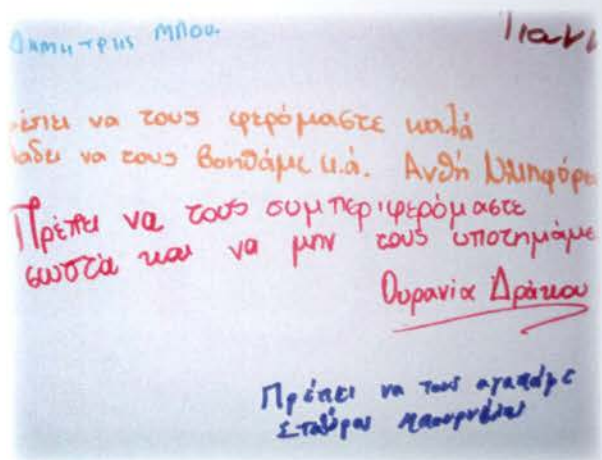 Δημητρης Μπου.
Γιανν
ρέπει να τους φερόμαστε καλά
λαδυ να τους βοηθάμε κ.ά. Ανθή Νικηφόρε
Πρέπει να τους συμπεριφερόμαστε
σωστά και να μην τους υποτημάμε
Ουρανία Δράκου
Πρέπει να τους αγαπάμε
Σταύρος